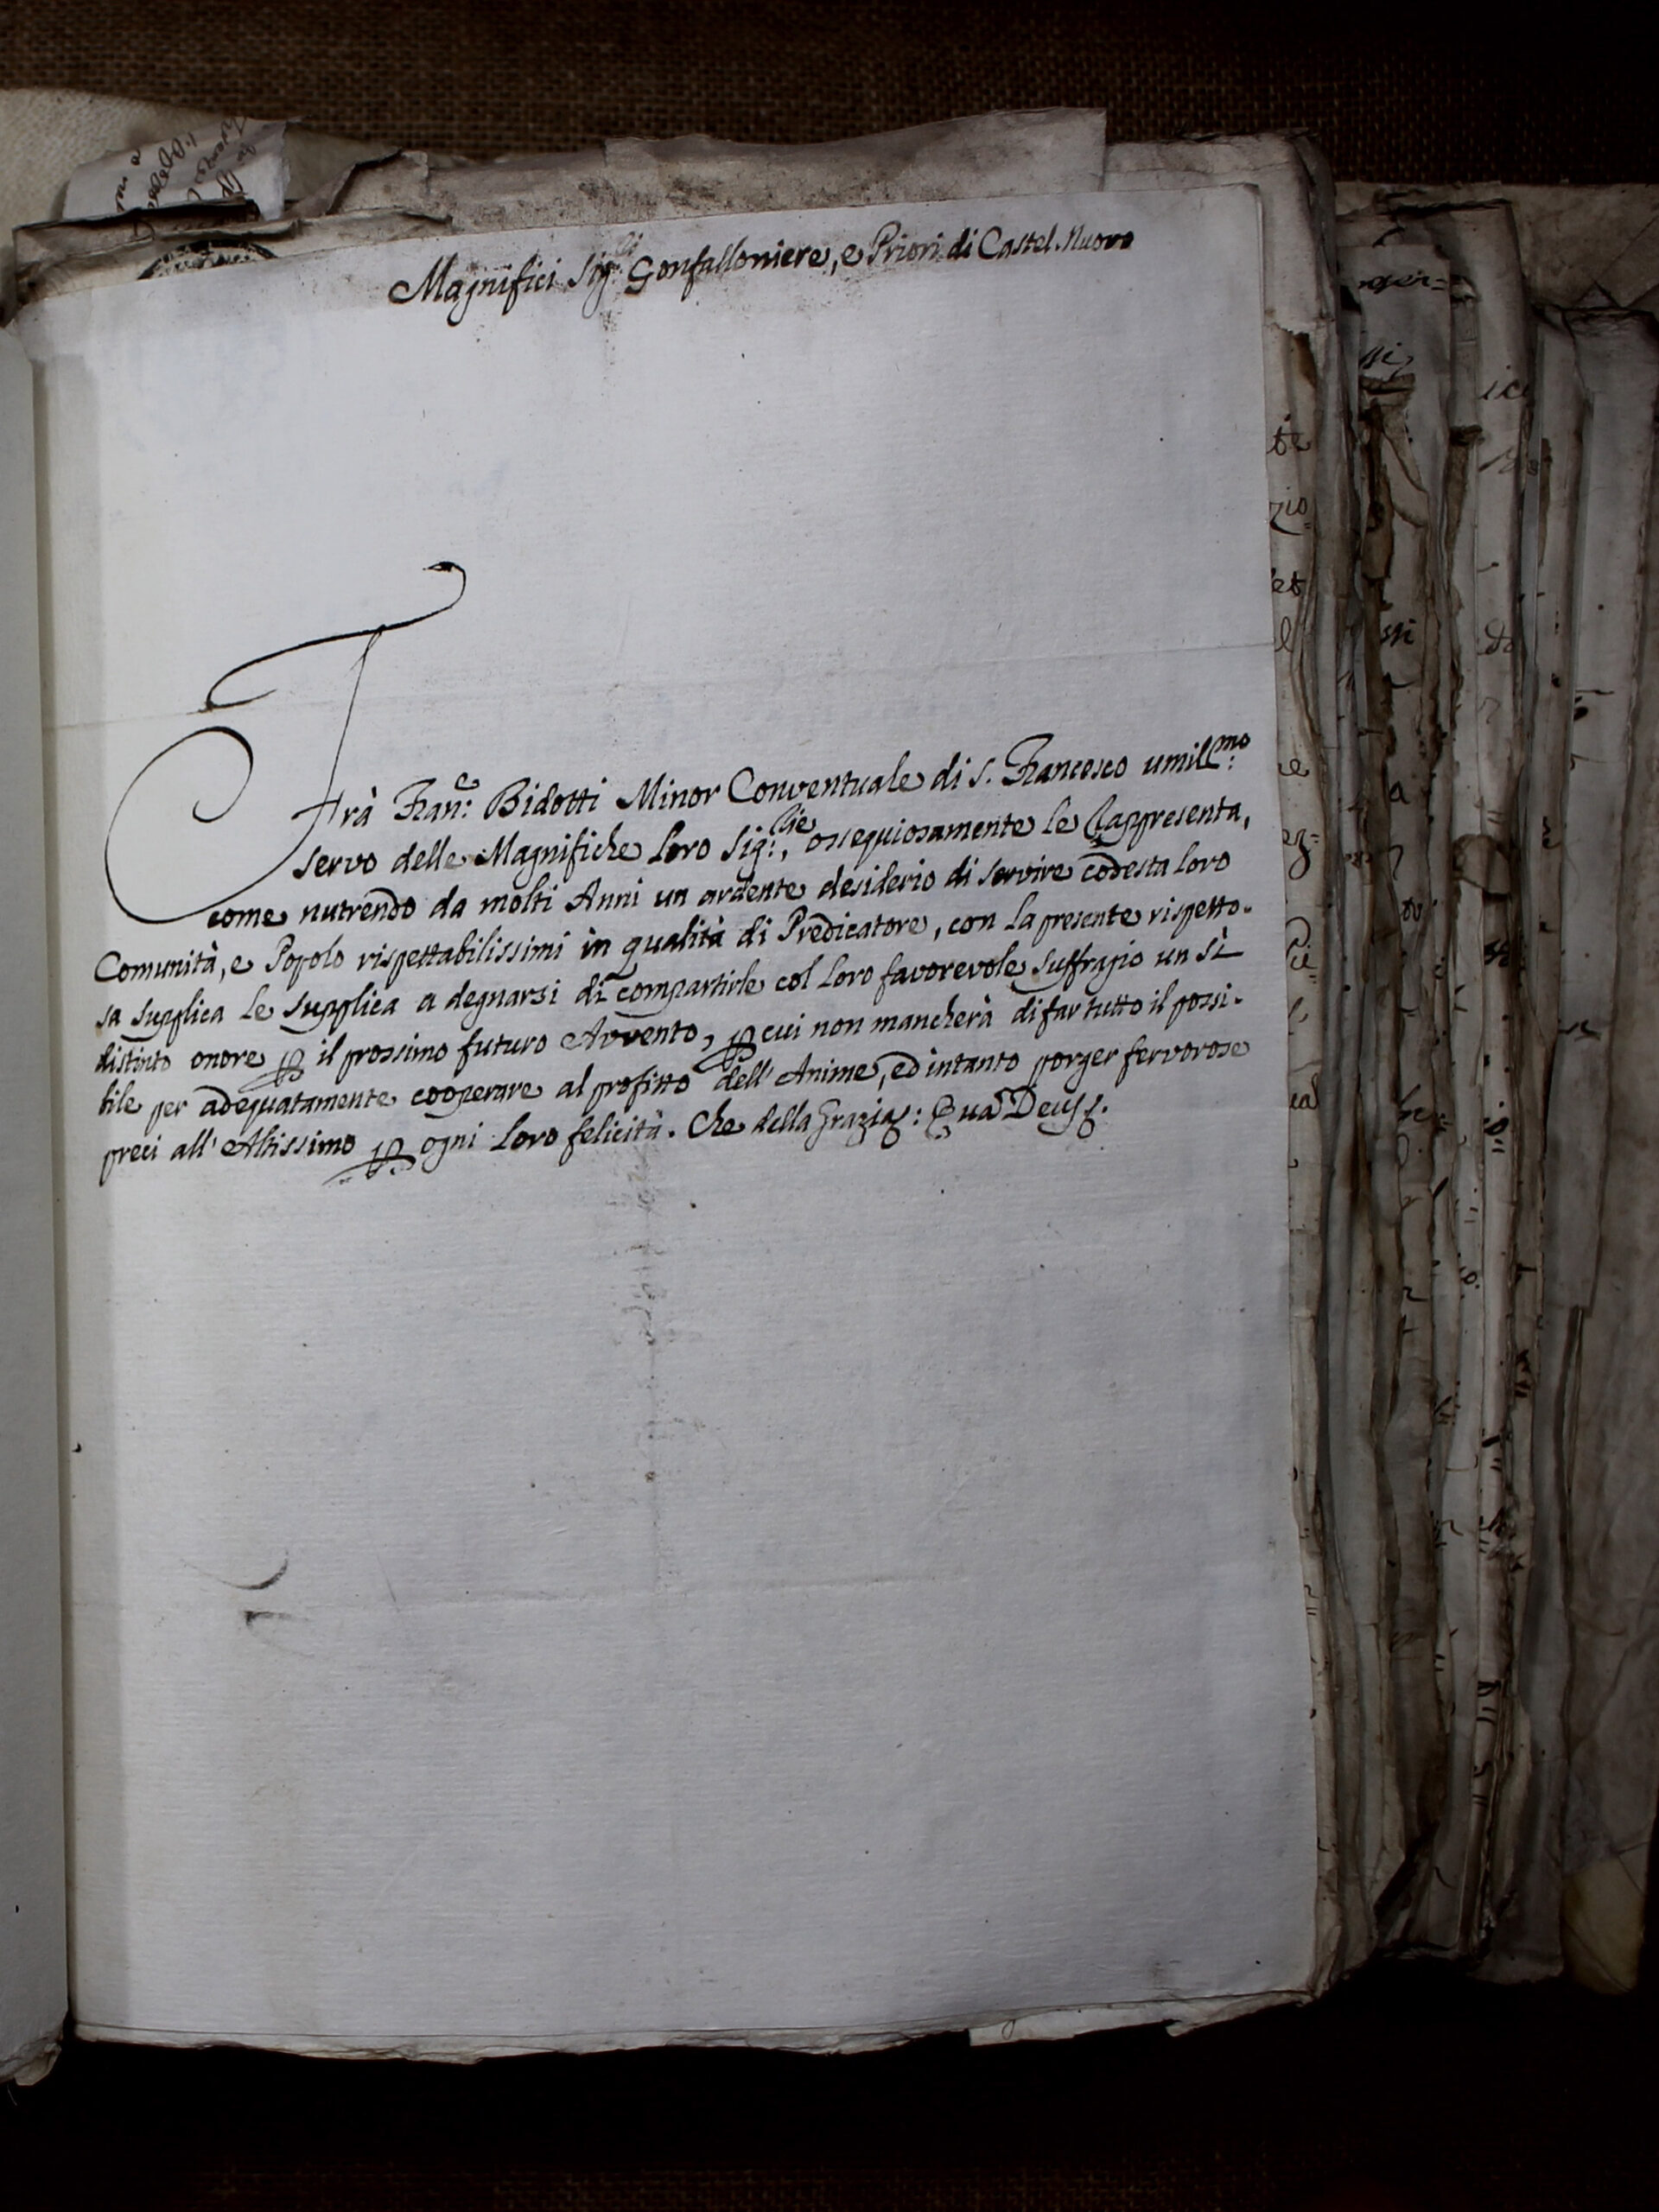 Magnifici Sig:ri Gonfalloniere, e Priori di Castel Nuovo
Frà Fran:co Bidotti Minor Conventuale di S. Francesco umill:mo
servo delle Magnifiche loro Sig:rie, ossequiosamente le rappresenta,
come nutrendo da molti Anni un ardente desiderio di servire codesta loro
Comunità, e Popolo rispettabilissimi in qualità di Predicatore, con la presente rispetto-
sa supplica le supplica a degnarsi di compartirle col loro favorevole suffragio un sì
distinto onore p il prossimo futuro Avvento, p cui non mancherà di far tutto il possi-
bile per adeguatamente cooperare al profitto dell'Anime, ed intanto porger fervorose
preci all'Altissimo p ogni loro felicità. Che della Grazia: Quā Deus.